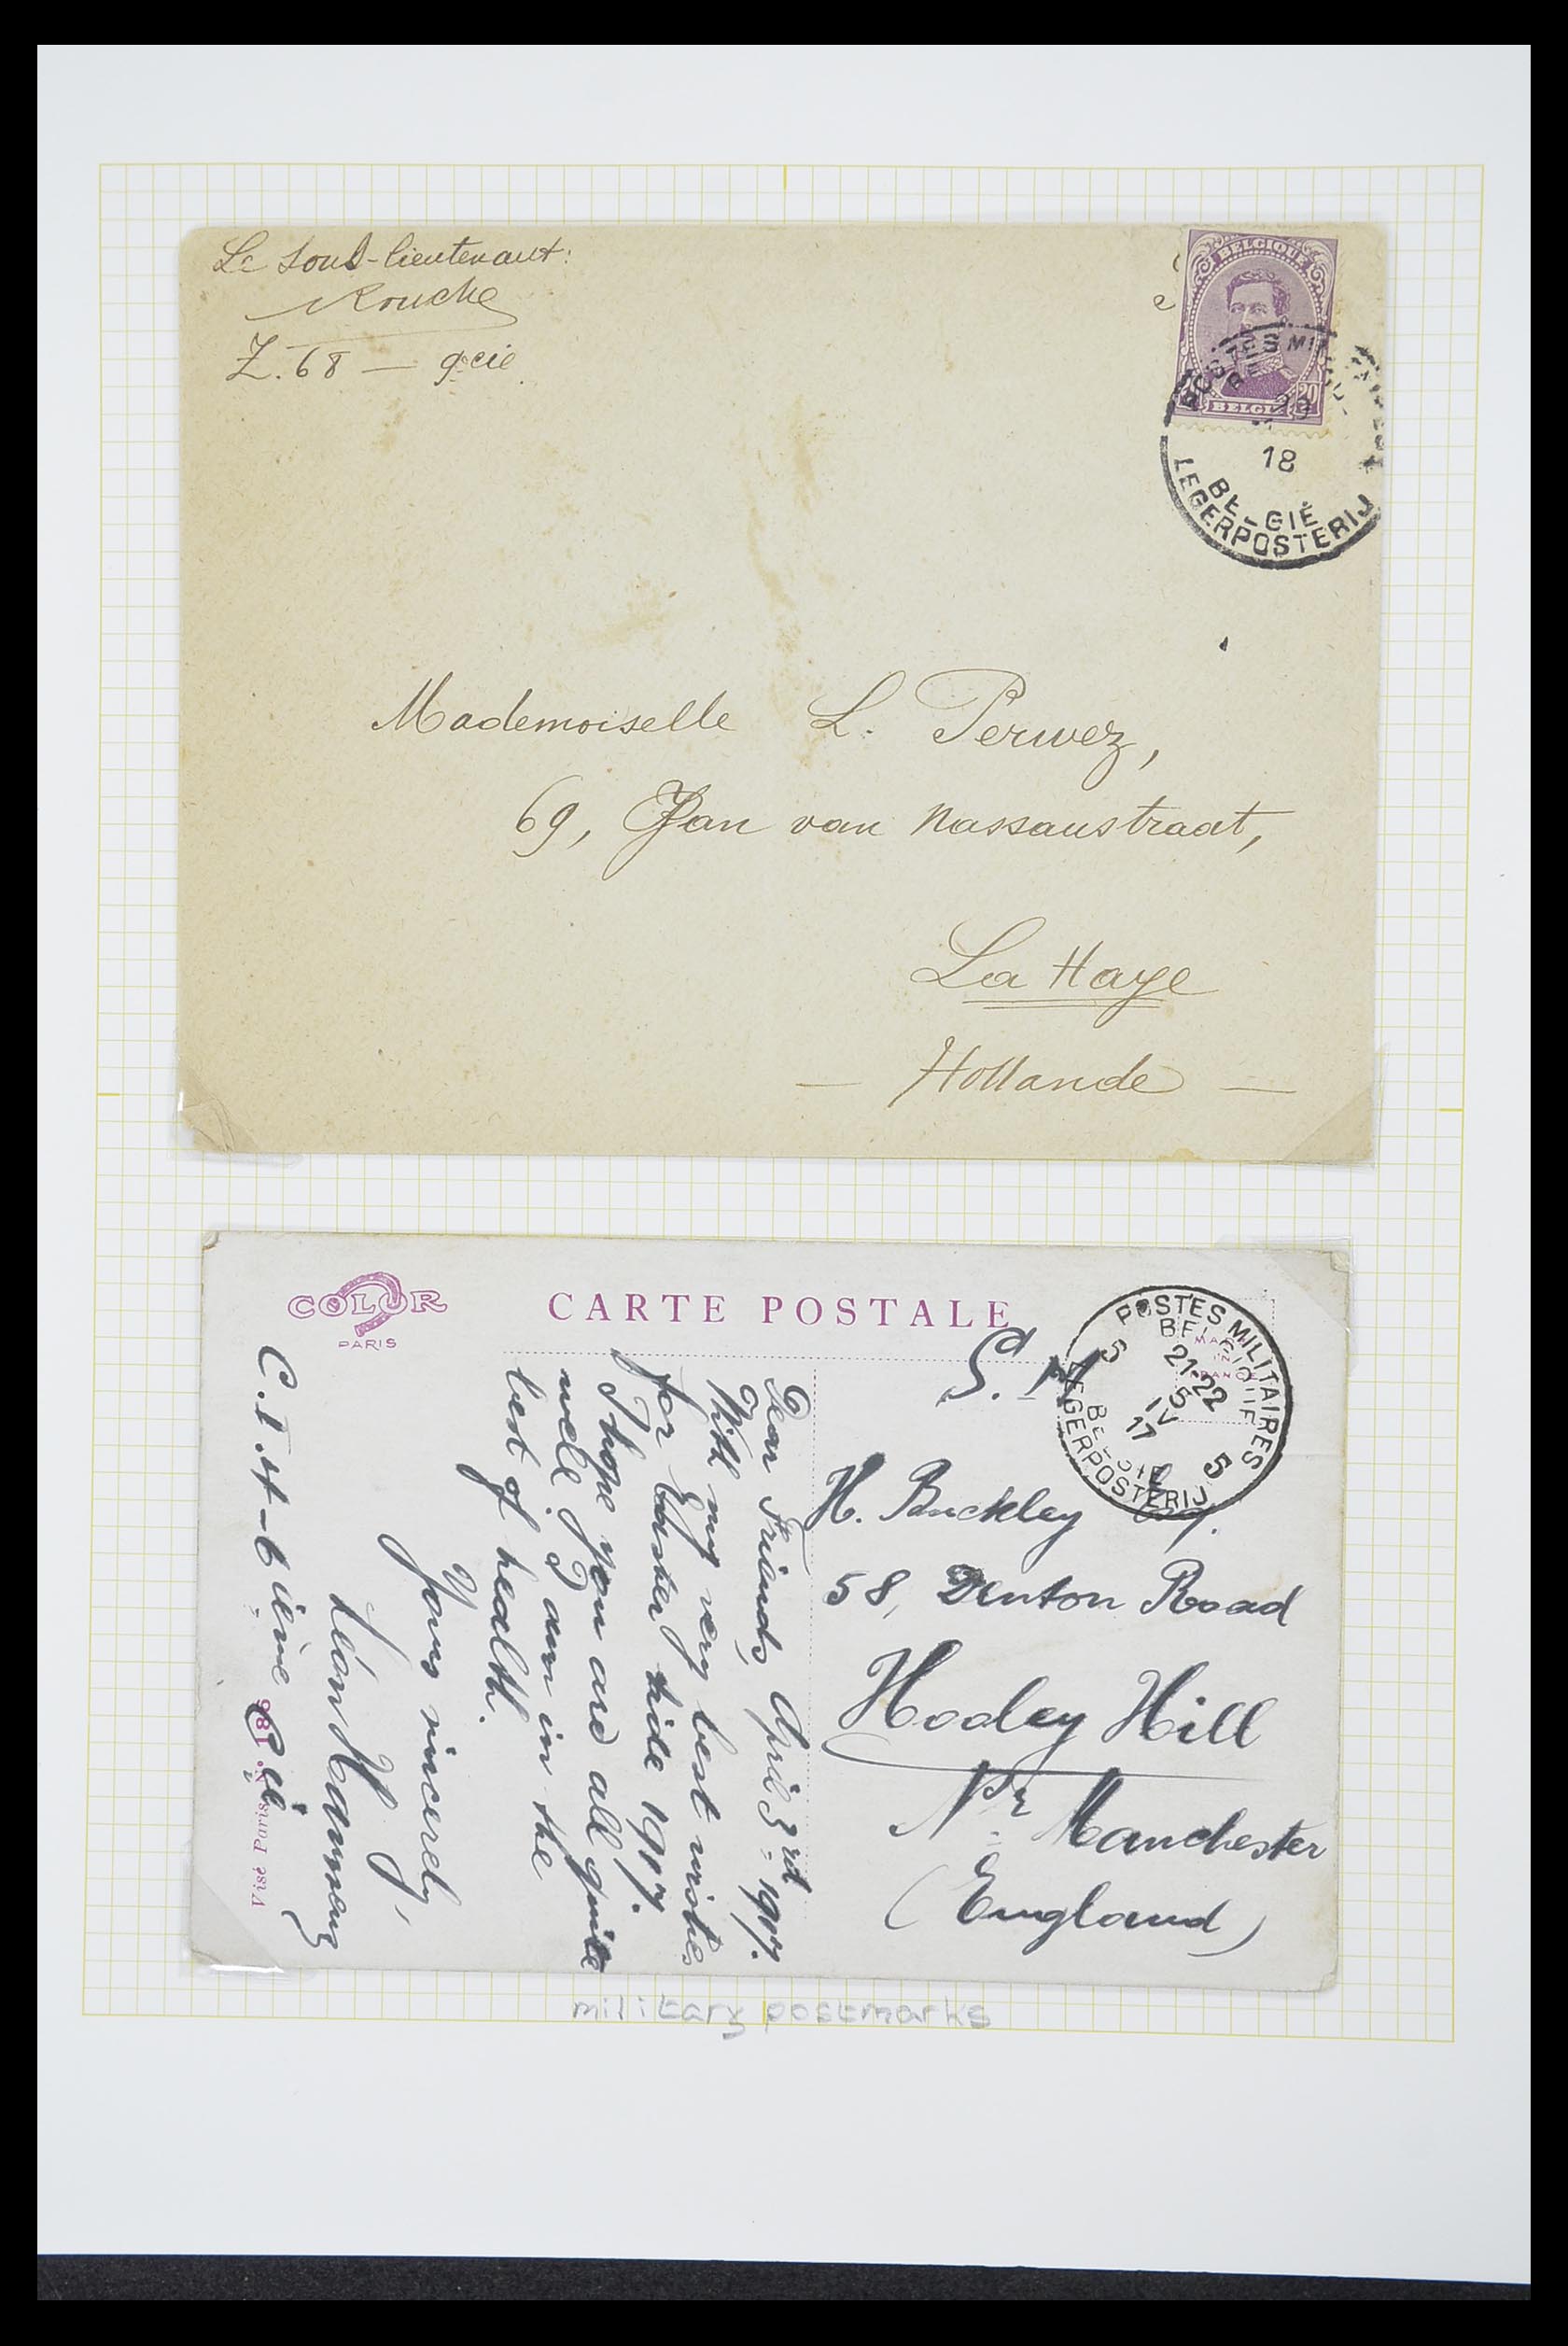 Le sous-lieutenant:
Rouche
Z. 68 — 9e cie
BELGIQUE
20
BELGI
POSTES MI
18
BELGIË
LEGERPOSTERIJ
Mademoiselle L. Perwez,
69, Jan van Nassaustraat,
La Haye
— Hollande —
COLOR
PARIS
CARTE POSTALE
S. M
POSTES MILITAIRES
BELGIQUE
5 21-22 5
5
IV
17
BELGIE
LEGERPOSTERIJ
MADE
IN
FRANCE
H. Buckley
58, Denton Road
Hooley Hill
Nr. Manchester
(England)
Dear Friends, April 3rd 1917.
With my very best wishes
for Easter tide 1917.
I hope you are all quite
well. I am in the
best of health.
Yours sincerely,
Léon
C.I.4-6ième Cie
Visé Paris N. 186
military postmarks